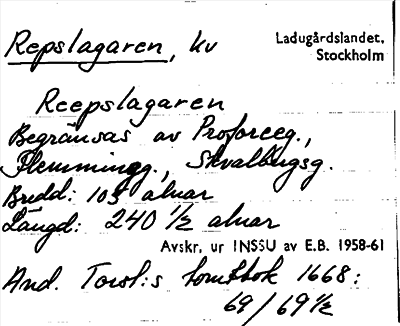 Repslagaren, kv
Ladugårdslandet,
Stockholm
Reepslagaren
Begränsas av Proforceg.,
Flemmingg., Skvalbugsg.
Bredd: 105 alnar
Längd: 240 1/2 alnar
Avskr. ur INSSU av E.B. 1958-61
And. Torst:s tomtbok 1668:
69/69 1/2